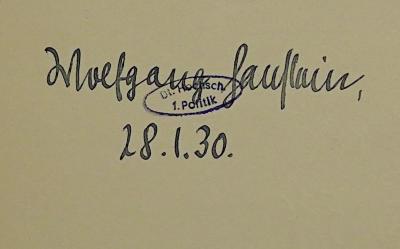 Wolfgang Hausstein,
Dt. Hochsch.
f. Politik
28.1.30.